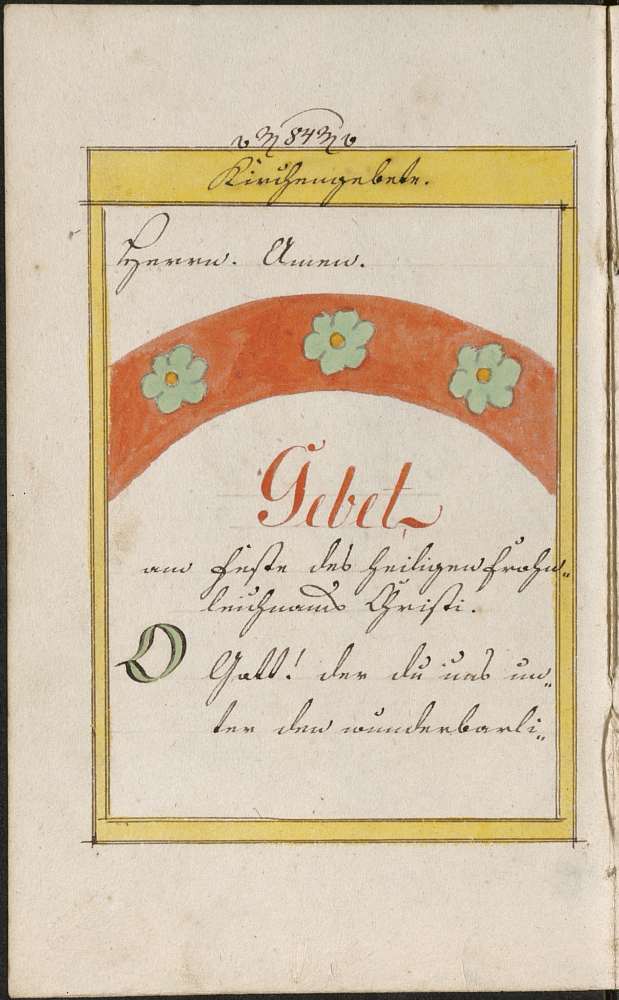 84
Kirchengebete.
Herrn. Amen.
Gebet
am Feste des heiligen Frohn„
leichnams Christi.
O Gott! der du uns un„
ter den wunderbarli„